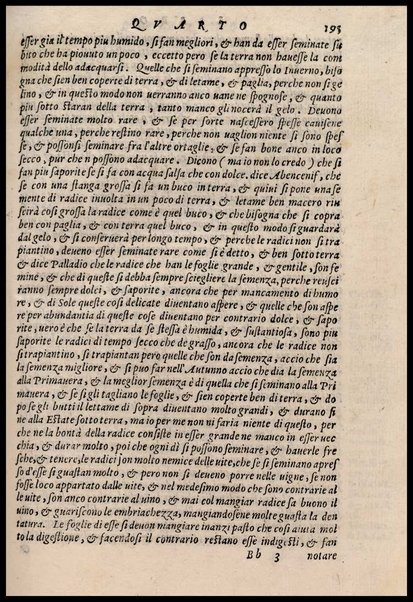 QVARTO 195
esser gia il tempo piu humido, si fan megliori, & han da esser seminate su
bito che ha piouuto un poco, eccetto pero se la terra non hauesse la com
modità dello adacquarsi. Quelle che si seminano appresso lo Inuerno, biso
gna che sien ben coperte di terra, & di letame, & paglia, perche non si ge
lino, & in questo modo non uerranno anco uane ne spognose, & quanto
piu sotto staran della terra, tanto manco gli nocerà il gelo. Deuono
esser seminate molto rare, & se per sorte nascessero spesse cauisene
qualche una, perche restino rare, perche non uaglion niente si sono spes
se, & possonsi seminare fra l'altre ortaglie, & se fan bone anco in loco
secco, pur che n possono adacquare. Dicono (ma io non lo credo) che si
fan piu saporite se si fa con acqua salsa che con dolce. dice Abencenif, che
se con una stanga grossa si fa un buco in terra, & quini si pone una se
mente di radice inuolta in un poco di terra, & letame ben macero riu
scirà cosi grossa la radice come è quel buco, & che bisogna che si copra
ben con paglia, & con terra quel buco, & in questo modo si guardarà
dal gelo, & si conseruerà per longo tempo, & perche le radici non si tra
piantino, deueno esser seminate rare come si è detto, & ben sotto terra
& dice Palladio che le radice che han le foglie grande, & gentile, son fe
mine, & che di queste si debba sempre sciegliere la semenza, perche reusci
ranno sempre dolci, & saporite, ancora che per mancamento di humo
re, & di Sole queste cosi delicate diuentano aspere, & quelle che son aspe
re per abundantia di queste cose diuentano per contrario dolce, & sapo
rite, uero è che se la terra da se stessa è humida, & sustantiosa, sono piu
saporite le radici di tempo secco che de grasso, ancora che le radice non
si trapiantino, si trapiantan pero quelle che son da semenza, accio che sia
la semenza migliore, & si puo far nell'Autunno accio che dia la semenza
alla Primauera, & la meglior semenza è di quella che si seminano alla Pri
mauera, & se si gli tagliano le foglie, & sien coperte ben di terra, & do
po se gli butti il lettame di sopra diuentano molto grandi, & durano si
ne alla Estate sotto terra, ma io per me non ni faria niente di questo, per
che ne la bontà della radice consiste in esser grande ne manco in esser uec
chia, & durar molto, poi che ogni dì si possono seminare, & hauerle fre
sche, & tenere, le radici jon molto nemice delle uite, che se si seminano apres
so d'esse si guastan molto, & pero non si deueno porre nelle uigne, se non
fosse loco appartato dalle uite, & nel medesimo modo che sono contrarie al
le uite, son anco contrarie al uino, & mai col mangiar radice sa buono il
uino, & guariscono le embriachezza, mangiandosene molte guasta la den
tatura. Le foglie di esse si deuon mangiare inanzi pasto che cosi aiuta mol
to la digestione, & facendosi il contrario restano esse indigesti, & fan
Bb 3 notare